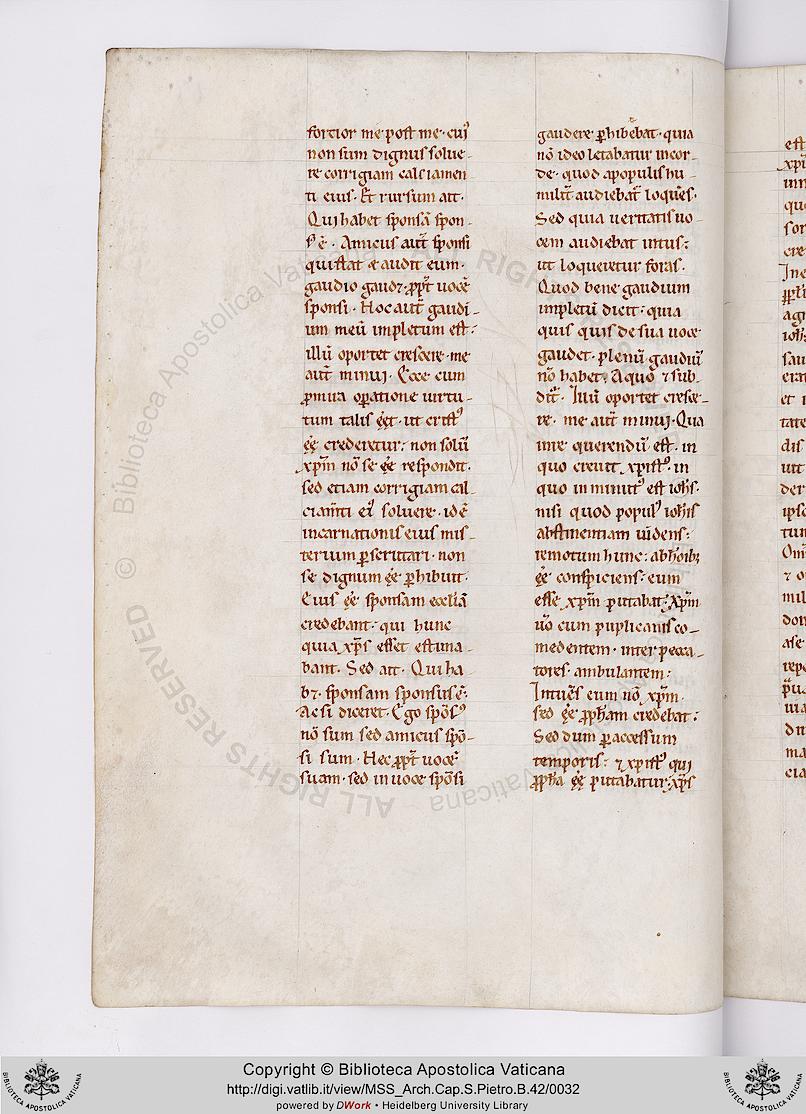 fortior me post me · cuiꝰ
non sum dignus solue-
re corrigiam calciamen
ti eius · Et rursum ait ·
Qui habet sponsā spon-
sꝰ ē · Amicus aut̄ sponsi
qui stat & audit eum ·
gaudio gaudꝫ · ꝓpt̄ uocē
sponsi · Hoc aut̄ gaudi-
um meū impletum est :
illū oportet crescere · me
aut̄ minui · Ecce cum
ꝓmira oꝑatione uirtu-
tum talis ēēt · ut cristꝰ
ēē crederetur : non solū
xp̄m nō se ēē respondit ·
sed etiam corrigiam cal-
ciam̄ti eiꝰ soluere · id ē
incarnationis eius mis-
terium ꝑscrutari · non
se dignum ēē ꝑhibuit ·
Eius ēē sponsam eccl̄iā
credebant · qui hunc
quia xp̄s esset estima-
bant · Sed ait · Qui ha-
bꝫ · sponsam sponsus ē :
Ac si diceret · Ego spōsꝰ
nō sum sed amicus spō-
si sum · Nec ꝓpt̄ uocē
suam · sed in uoce spōsi
gaudere ꝑhibebat · quia
nō ideo letabatur in cor-
de · quod a populis hu-
milit̄ audiebat̄ loquēs ·
Sed quia ueritatis uo-
cem audiebat intus :
ut loqueretur foras ·
Quod bene gaudium
impletū dicit : quia
quis quis de sua uoce
gaudet · plenū gaudiū
nō habet : A quo & sub-
dit̄ · Illū oportet cresce-
re · me aut̄ minui · Qua
in re querendū est · in
quo creuit xp̄istꝰ · in
quo in minutꝰ est ioh̄s ·
nisi quod populꝰ ioh̄is
abstinentiam uidens :
remotum hunc : ab hoībꝫ
ēē conspiciens : eum
esse xp̄m putabat : Xp̄m
u̅o cum puplicanis co-
medentem · inter pecca-
tores · ambulantem :
Intuēs eum nō xp̄m ·
sed ēē ꝓph̄am credebat :
Sed dum ꝑ accessum
temporis : & xp̄istꝰ qui
ꝓph̄a ēē putabatur : xp̄s
Copyright © Biblioteca Apostolica Vaticana
http://digi.vatlib.it/view/MSS_Arch.Cap.S.Pietro.B.42/0032
powered by DWork • Heidelberg University Library